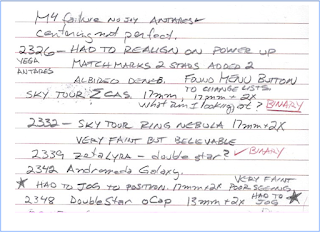 M4 failure no joy ANTARES
centering not perfect.
2326 - HAD TO REALIGN ON POWER UP
VEGA MATCHMARKS 2 STARS ADDED 2
ANTARES ALBIREO DENEB. FOUND MENU BUTTON
TO CHANGE LISTS
SKY TOUR Σ CAS 17mm, 17mm + 2X
what am I looking at? BINARY
2332 - SKY TOUR RING NEBULA 17mm+2X
VERY FAINT BUT BELIEVABLE
2339 Zeta Lyra - double star? ✓ BINARY
2342 Andromeda Galaxy. VERY FAINT
★ HAD TO JOG TO POSITION. 17mm+2X POOR SEEING
2348 Double Star oCap 13mm+2X HAD TO JOG ★